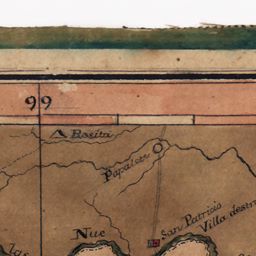 99
Rosita
Papalote
San Patricio
Villa destr
Nue